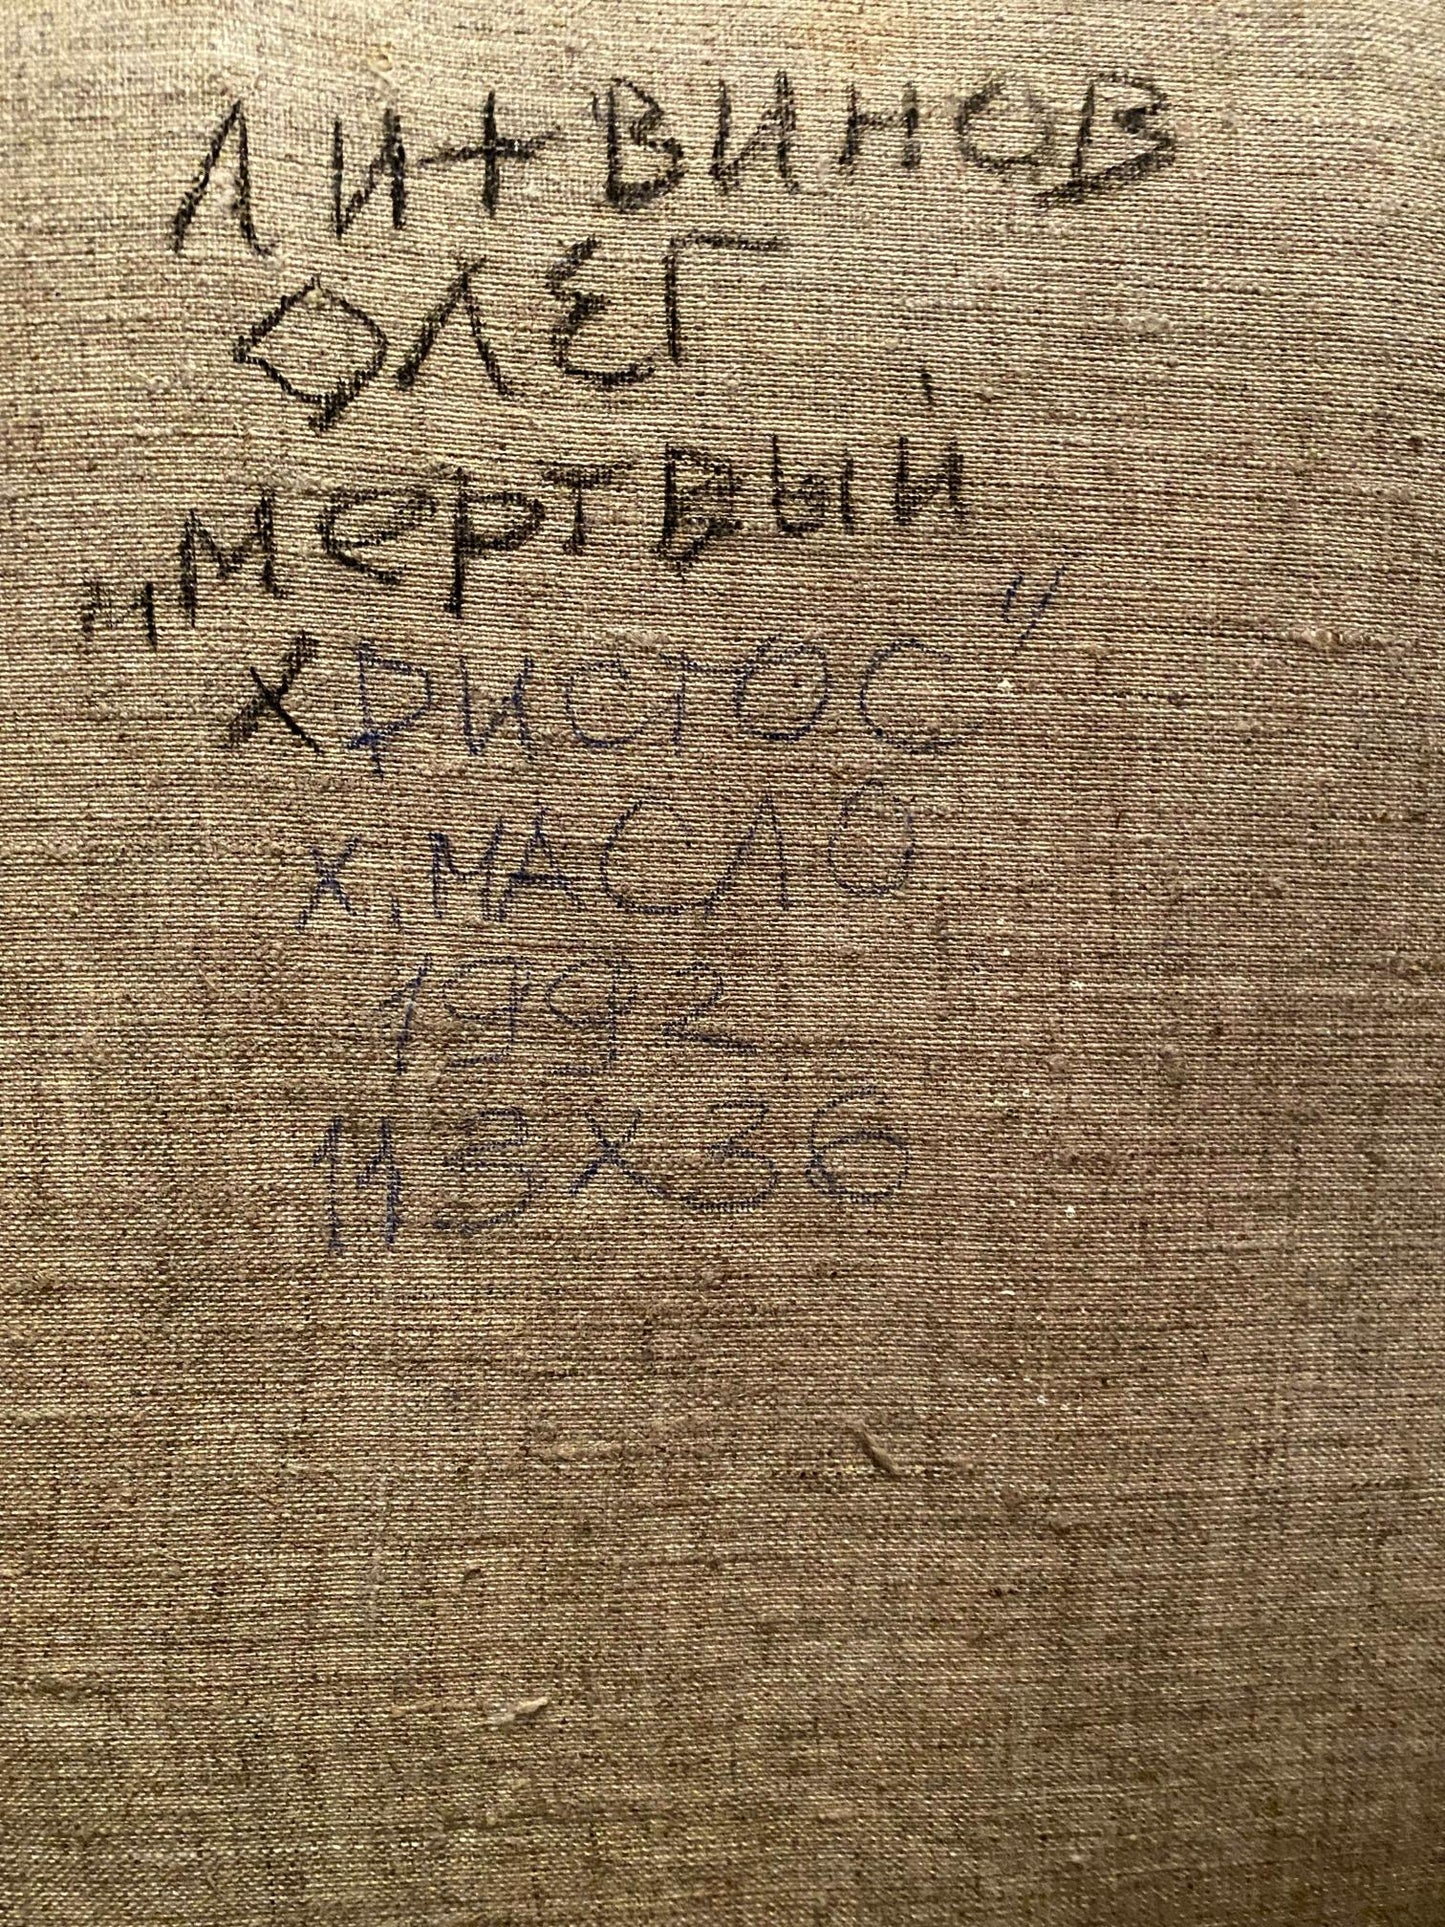 ЛИТВИНОВ
ОЛЕГ
"МЕРТВЫЙ
ХРИСТОС"
Х, МАСЛО
1992
113X36